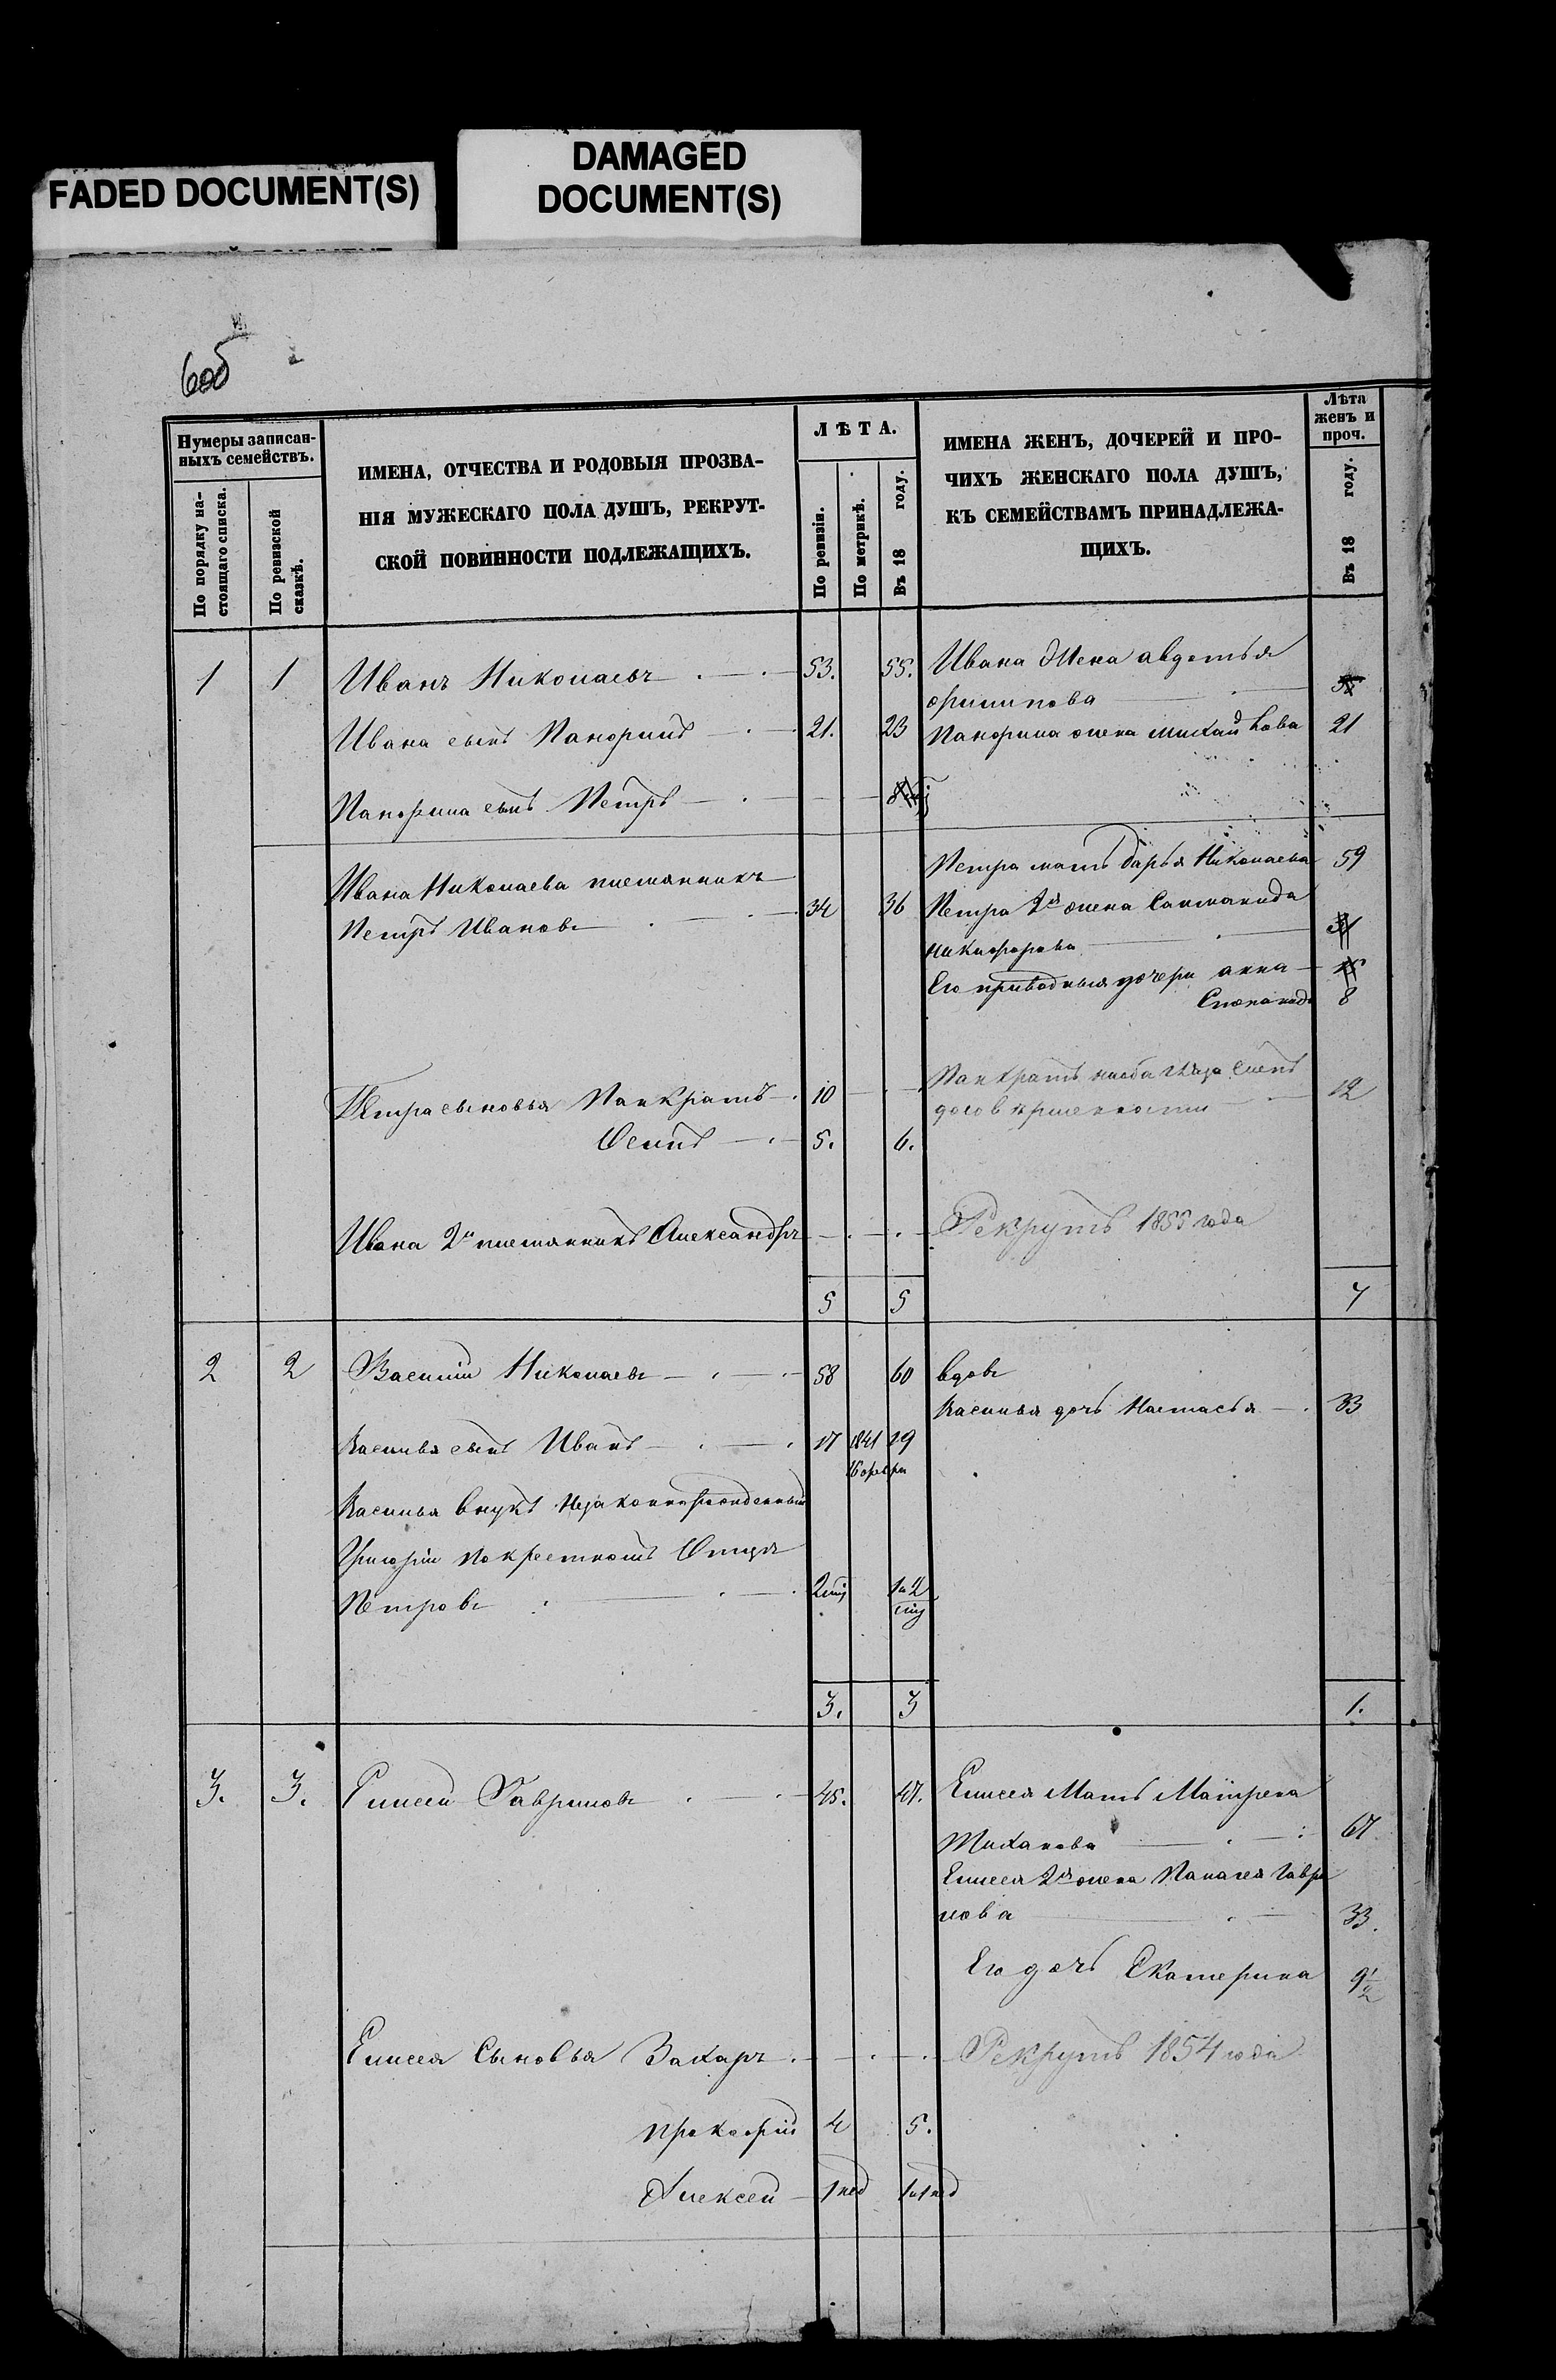 FADED DOCUMENT(S)
DAMAGED
DOCUMENT(S)
6об
Нумеры записан-
ныхъ семействъ.
По порядку на-
стоящаго списка.
По ревизской
сказкѣ.
ИМЕНА, ОТЧЕСТВА И РОДОВЫЯ ПРОЗВА-
НІЯ МУЖЕСКАГО ПОЛА ДУШЪ, РЕКРУТ-
СКОЙ ПОВИННОСТИ ПОДЛЕЖАЩИХЪ.
ЛѢТА.
По ревизіи.
По метрикѣ.
Въ 18 году.
ИМЕНА ЖЕНЪ, ДОЧЕРЕЙ И ПРО-
ЧИХЪ ЖЕНСКАГО ПОЛА ДУШЪ,
КЪ СЕМЕЙСТВАМЪ ПРИНАДЛЕЖА-
ЩИХЪ.
Лѣта
женъ и
проч.
Въ 18 году.
1 1 Иванъ Николаевъ 53. 55. Ивана жена авдотья
филипова
Ивана сынъ Панфилъ 21. 23 Панфила жена 21
Панфила сынъ Петръ
Петра мать дарья Николаева 59
Ивана Николаева племянникъ
Петръ Ивановъ 34 36 Петра 2я жена
никифорова
Его приводныя дочери анна
8
Петра сыновья Панкратъ 10 Панкратъ 12
Осипъ 5. 6.
Ивана 2й племянникъ Александръ Рекрутъ 1855 года
5 5 7
2 2 Василий Николаевъ 58 60 вдовъ
Василья дочь Настасья 33
Василья сынъ Иванъ 17 1841 19
Василья внукъ Незаконнорожденный
Григорій по крестномъ Отцѣ
Петровъ 2 1 и 2
3. 3 1.
3. 3. Елисей Гавриловъ 45. 47. Елисея Мать Матрена
67.
Елисея 2я жена Палагея Гаври
лова 33.
Его дочь Екатерина 9½
Елисея Сыновья Захаръ Рекрутъ 1854 года
Прокофій 4 5.
Алексей 1 нед 1 и 1 нед